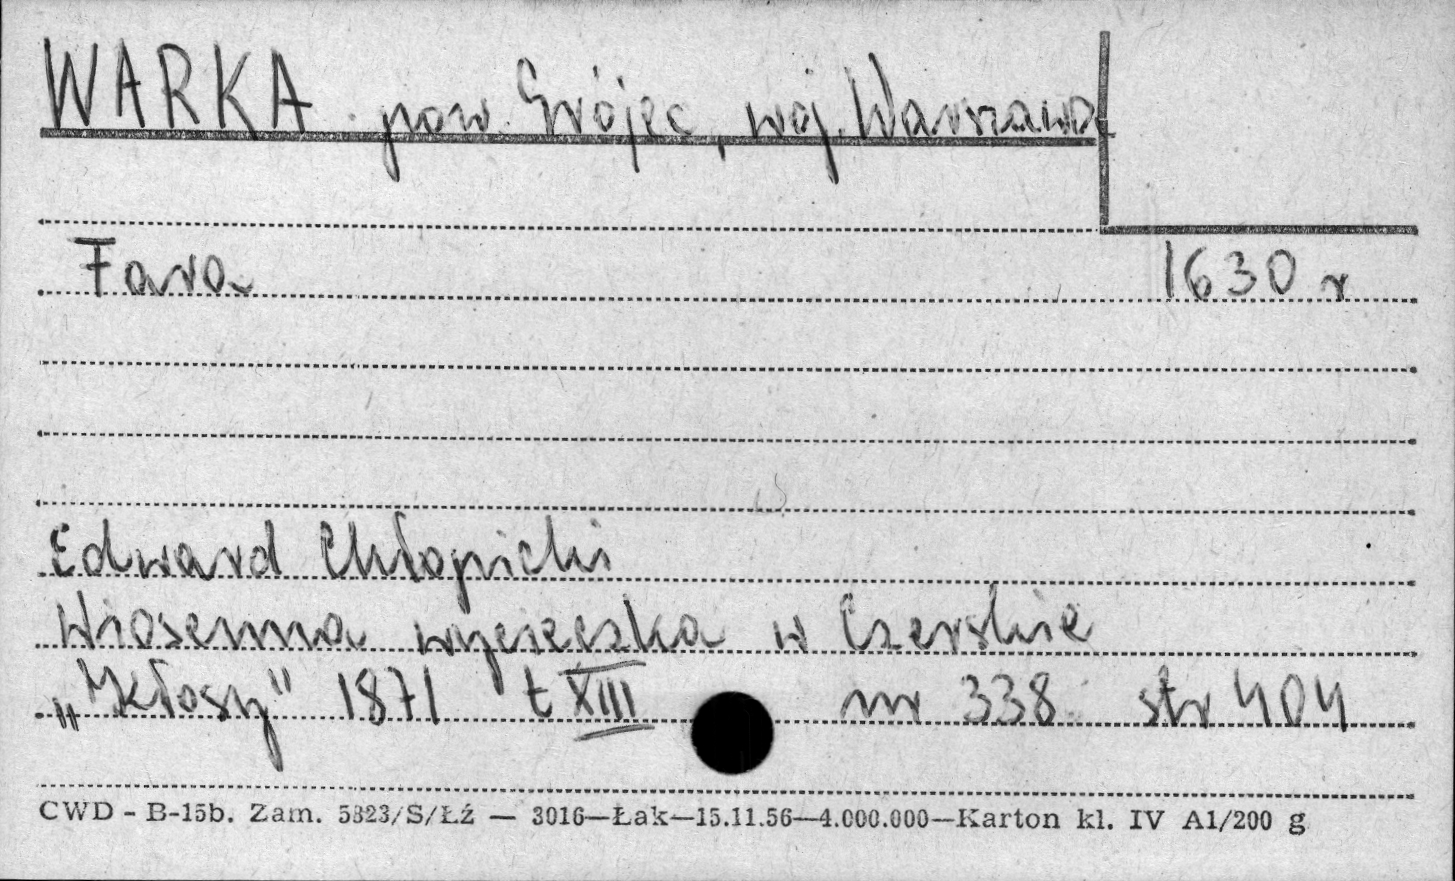 WARKA pow. Grójec, woj. Warszawa
Fara 1630 r
Edward Chłopicki
Wiosenna wycieczka w Czerskie
„Kłosy" 1871 t XIII nr 338 str 404
CWD - B-15b. Zam. 5823/S/Łź — 3016—Łak—15.11.56—4.000.000—Karton kl. IV A1/200 g